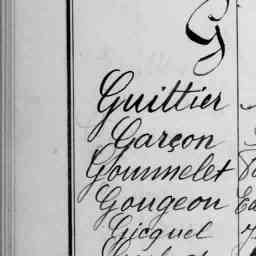 G
Guittier
Garçon
Gommelet
Gougeon
Gicquel